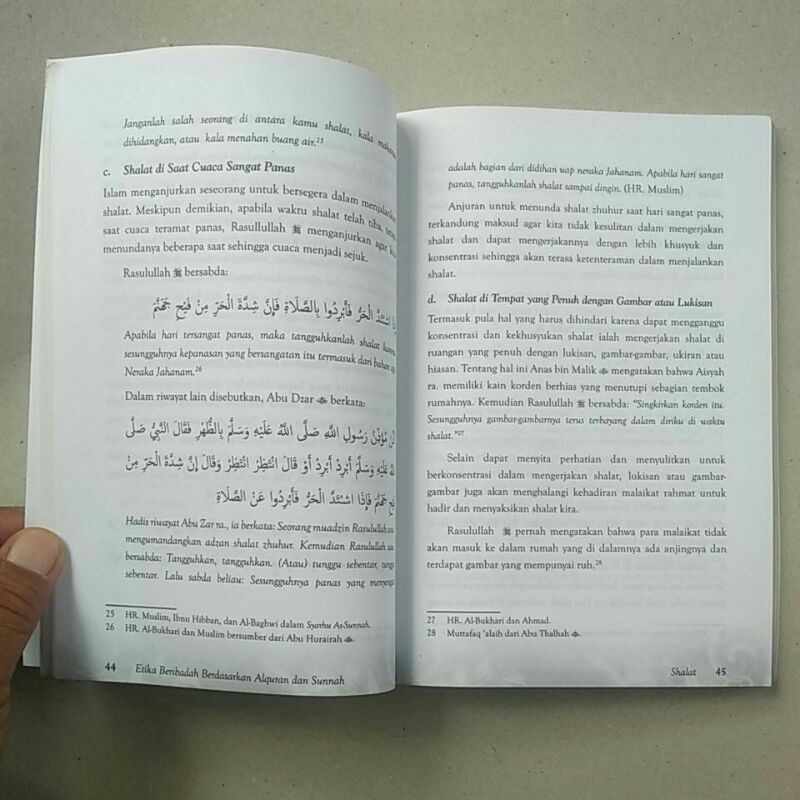 Janganlah salah seorang di antara kamu shalat, kala
dihidangkan, atau kala menahan buang air.25
c. Shalat di Saat Cuaca Sangat Panas
Islam menganjurkan seseorang untuk bersegera dalam menjalankan
shalat. Meskipun demikian, apabila waktu shalat telah tiba,
saat cuaca teramat panas, Rasullullah ﷺ menganjurkan agar
menundanya beberapa saat sehingga cuaca menjadi sejuk.
Rasulullah ﷺ bersabda:
اشْتَدَّ الْحَرُّ فَأَبْرِدُوا بِالصَّلَاةِ فَإِنَّ شِدَّةَ الْحَرِّ مِنْ فَيْحِ جَهَنَّمَ
Apabila hari tersangat panas, maka tangguhkanlah shalat
sesungguhnya kepanasan yang bersangatan itu termasuk dari bahan
Neraka Jahanam.26
Dalam riwayat lain disebutkan, Abu Dzar berkata:
مُؤَذِّنُ رَسُولِ اللَّهِ صَلَّى اللَّهُ عَلَيْهِ وَسَلَّمَ بِالظُّهْرِ فَقَالَ النَّبِيُّ صَلَّى
عَلَيْهِ وَسَلَّمَ أَبْرِدْ أَبْرِدْ أَوْ قَالَ انْتَظِرْ انْتَظِرْ وَقَالَ إِنَّ شِدَّةَ الْحَرِّ مِنْ
جَهَنَّمَ فَإِذَا اشْتَدَّ الْحَرُّ فَأَبْرِدُوا عَنْ الصَّلَاةِ
Hadis riwayat Abu Zar ra., ia berkata: Seorang muadzin Rasulullah
mengumandangkan adzan shalat zhuhur. Kemudian Rasulullah
bersabda: Tangguhkan, tangguhkan. (Atau) tunggu sebentar,
sebentar. Lalu sabda beliau: Sesungguhnya panas yang
25 HR. Muslim, Ibnu Hibban, dan Al-Baghwi dalam Syarhu As-Sunnah.
26 HR. Al-Bukhari dan Muslim bersumber dari Abu Hurairah
44 Etika Beribadah Berdasarkan Alquran dan Sunnah
adalah bagian dari didihan uap neraka Jahanam. Apabila hari sangat
panas, tangguhkanlah shalat sampai dingin. (HR. Muslim)
Anjuran untuk menunda shalat zhuhur saat hari sangat panas,
terkandung maksud agar kita tidak kesulitan dalam mengerjakan
shalat dan dapat mengerjakannya dengan lebih khusyuk dan
konsentrasi sehingga akan terasa ketenteraman dalam menjalankan
shalat.
d. Shalat di Tempat yang Penuh dengan Gambar atau Lukisan
Termasuk pula hal yang harus dihindari karena dapat mengganggu
konsentrasi dan kekhusyukan shalat ialah mengerjakan shalat di
ruangan yang penuh dengan lukisan, gambar-gambar, ukiran atau
hiasan. Tentang hal ini Anas bin Malik mengatakan bahwa Aisyah
ra. memiliki kain korden berhias yang menutupi sebagian tembok
rumahnya. Kemudian Rasulullah ﷺ bersabda: "Singkirkan korden itu.
Sesungguhnya gambar-gambarnya terus terbayang dalam diriku di waktu
shalat."27
Selain dapat menyita perhatian dan menyulitkan untuk
berkonsentrasi dalam mengerjakan shalat, lukisan atau gambar-
gambar juga akan menghalangi kehadiran malaikat rahmat untuk
hadir dan menyaksikan shalat kita.
Rasulullah ﷺ pernah mengatakan bahwa para malaikat tidak
akan masuk ke dalam rumah yang di dalamnya ada anjingnya dan
terdapat gambar yang mempunyai ruh.28
27 HR. Al-Bukhari dan Ahmad.
28 Muttafaq 'alaih dari Abu Thalhah
Shalat 45